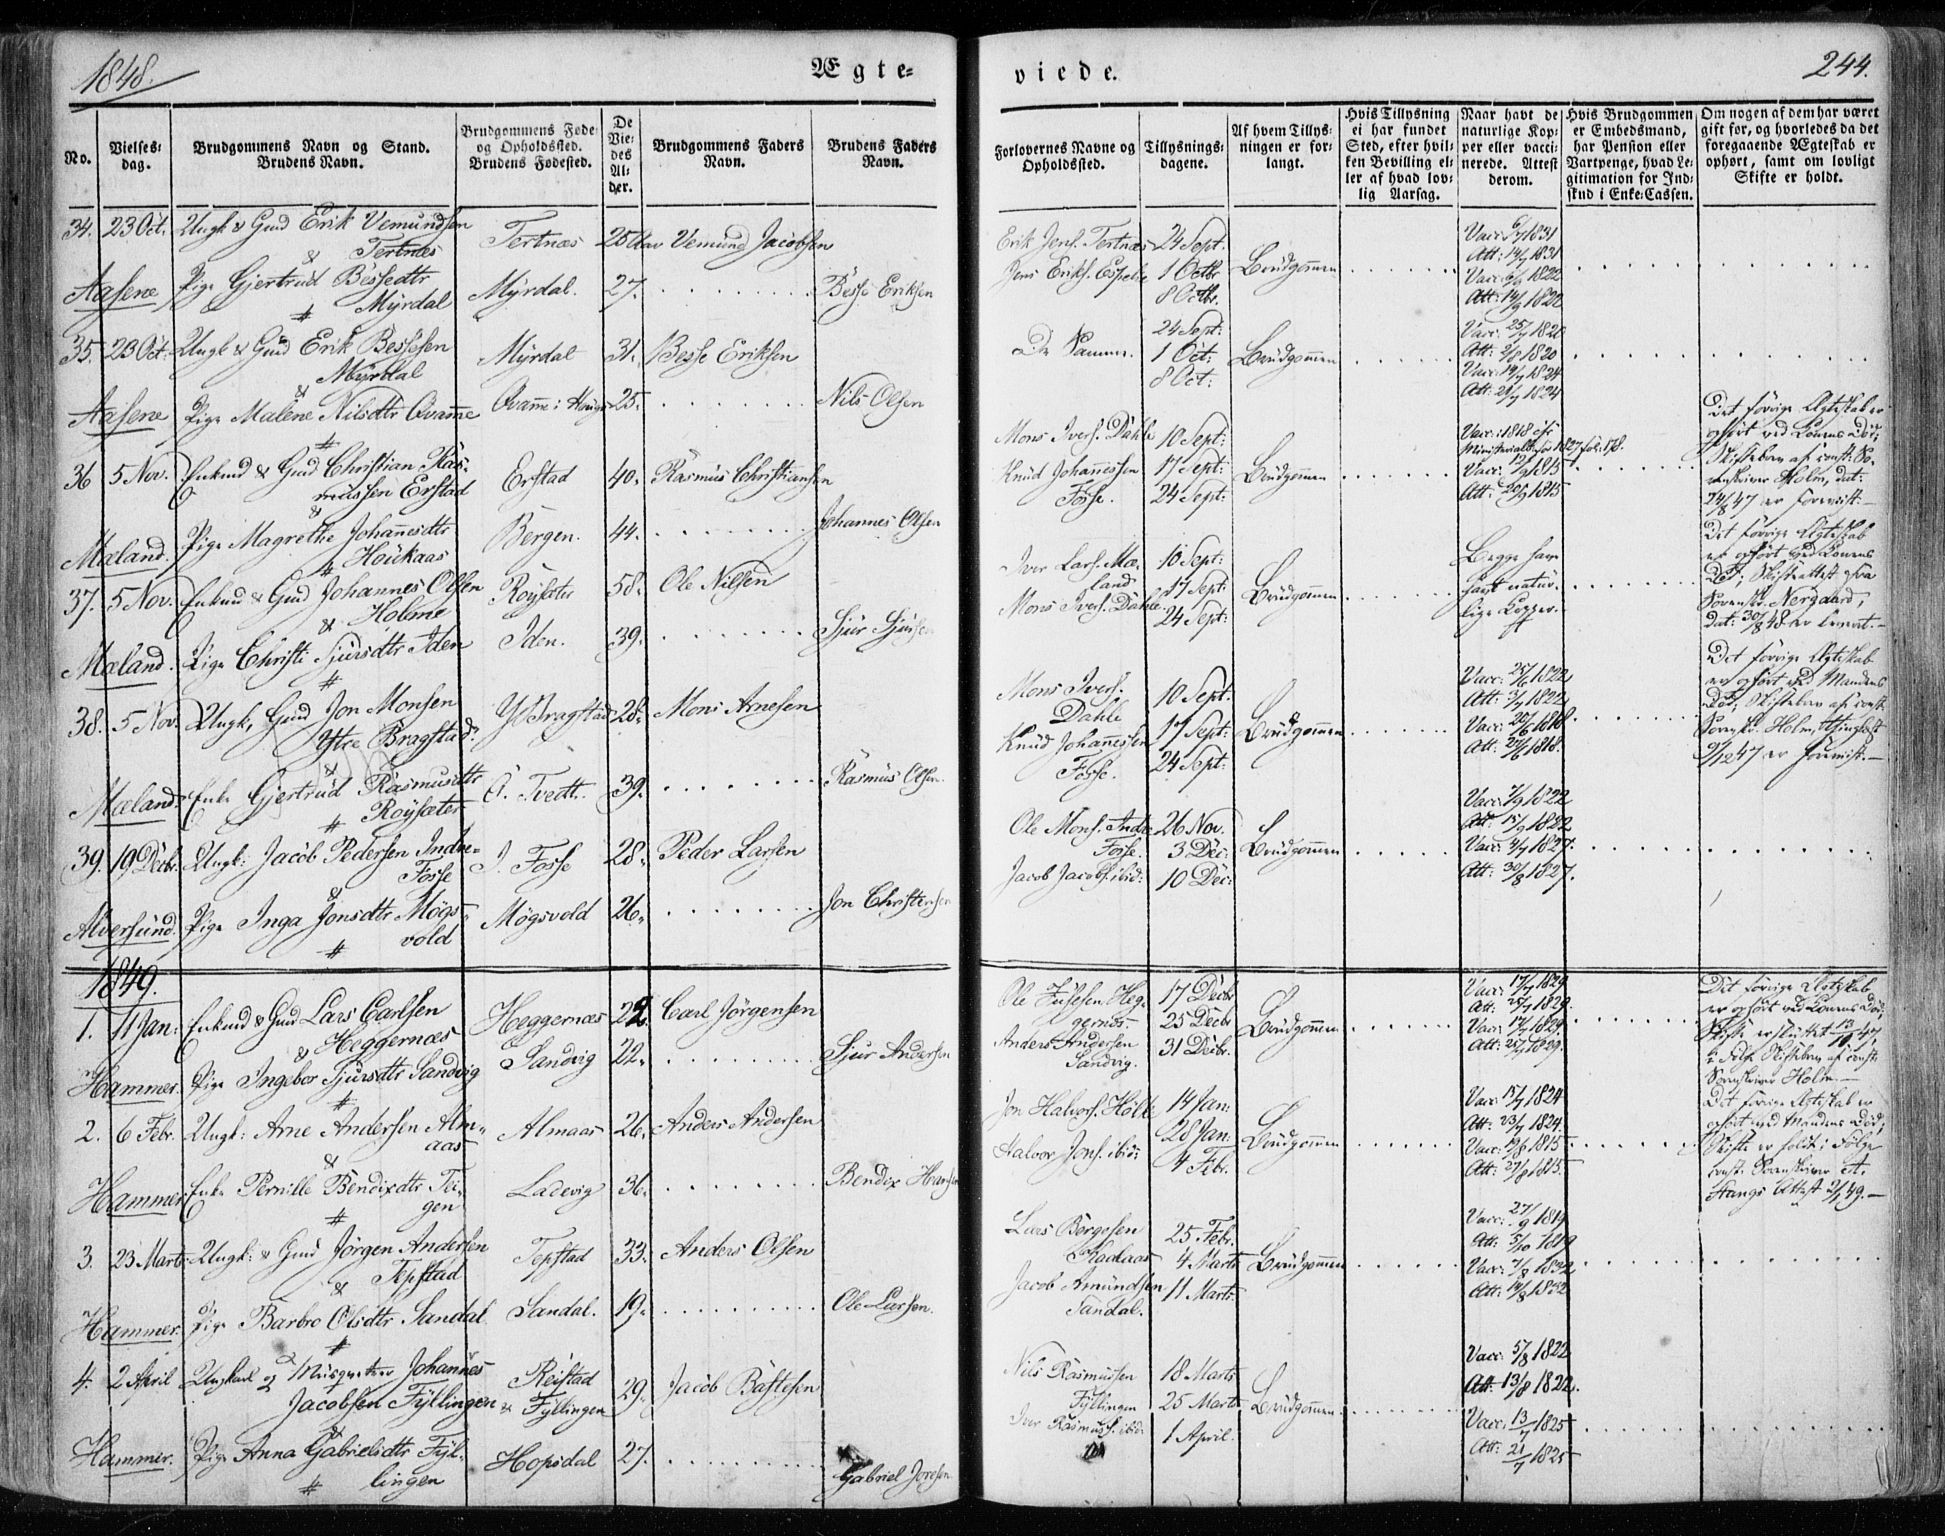 1848.
Ægte-
No.
Vielses-
dag.
Brudgommens Navn og Stand.
Brudens Navn.
Brudgommens Føde-
og Opholdssted.
Brudens Fødested.
De
Vie-
des
Al-
der.
Brudgommens Faders
Navn.
Brudens Faders
Navn.
34. 23 Oct. Ungk & Gmd Erik Vemundsen Tertnæs 25 Aar Vemund Jacobsen
& Tertnæs
Aasene Pige Gjertrud Bessedtr Myrdal. 27. Besse Eriksen
# Myrdal
35. 23 Oct. Ungk & Gmd Erik Bessesen Myrdal 31. Besse Eriksen
& Myrdal
Aasene Pige Malene Nilsdtr Qvamme Qvamme i Haug 25. Nils Olsen
#
36 5 Nov. Enkmd & Gmd Christian Ras- Erstad 40. Rasmus Christiansen
mussen Erstad
&
Mæland. Pige Magrethe Johannesdtr Bergen. 44. Johannes Olsen
# Houkaas
37. 5 Nov. Enkmd & Gmd Johannes Olsen Röysæter 58. Ole Nilsen
& Holme
Mæland. Pige Christi Sjursdtr Iden Iden. 39. Sjur Sjursen
#
38. 5 Nov. Ungk, Gmd Jon Monsen Y Bragstad 28. Mons Arnesen
Ytre Bragstad.
&
Mæland. Enke Gjertrud Rasmusdtr Ö. Tvedt. 39. Rasmus Olsen
# Röysæter
39. 19 Decbr. Ungk: Jacob Pedersen Indre- I. Fosse 28. Peder Larsen
& Fosse
Alversund. Pige Inga Jonsdtr Mögs- Mögsvold 26. Jon Christensen
# vold
1849.
1. 11 Jan: Enkmd & Gmd Lars Carlsen Heggernæs 22. Carl Jörgensen
& Heggernæs
Hammer. Pige Ingebor Sjursdtr Sandvig Sandvig 22. Sjur Andersen
#
2. 6 Febr. Ungk: Arne Andersen Alm- Almaas 26. Anders Andersen
aas
&
Hammer Enke Pernille Bendixdtr Tei- Ladevig 36. Bendix Hansen
# gen
3. 23 Marts Ungk: & Gmd Jörgen Andersen Tepstad 33. Anders Olsen
& Tepstad
Hammer. Pige Barbro Olsdtr Sandal Sandal. 19. Ole Larsen.
#
4. 2 April Ungkarl og Musqueteer Johannes Reistad 29. Jacob Bastesen
Jacobsen Fyllingen & Fyllingen
&
Hammer. Pige Anna Gabrielsdtr Fyl- Hopsdal 27. Gabriel Joresen
# lingen
viede.
244.
Forlovernes Navne og
Opholdssted.
Tillysnings-
dagene.
Af hvem Tillys-
ningen er for-
langt.
Hvis Tillysning
ei har fundet
Sted, efter hvil-
ken Bevilling el-
ler af hvad lov-
lig Aarsag.
Naar havt de
naturlige Kop-
per eller vacci-
nerede. Attest
derom.
Hvis Brudgommen
er Embedsmand,
har Pension eller
Vartpenge, hvad Le-
gitimation for Ind-
skud i Enke-Cassen.
Om nogen af dem har været
gift før, og hvorledes da det
foregaaende Ægteskab er
ophørt, samt om lovligt
Skifte er holdt.
Erik Jens. Tertnæs 24 Sept. Vacc: 6/7 1831
Att: 14/7 1831
Jens Eriks. Espelie 1 Octbr. Brudgommen Vacc: 6/9 1822
8 Octbr. Att: 14/9 1822
24 Sept: Vacc: 25/7 1820
De Samme. 1 Oct: Brudgommen Att: 2/8 1820
8 Oct: Vacc: 14/7 1824
Att: 24/7 1824
Mons Ivers. Dahle 10 Sept: Vacc: 1818 cfr Det forrige Ægteskab er
Ministerialb. for 1827 fol: 178. ophørt ved Konens Død;
Knud Johannessen 17 Sept: Brudgommen Vacc: 12/9 1815 Skiftebrev af const: So-
Fosse. 24 Sept: Att: 20/9 1815 renskriver Holm, dat:
24/8 47 er forevist.
Iver Lars. Mæ- 10 Sept: Begge have Det forrige Ægteskab
land 17 Sept: Brudgommen havt natur- er ophørt ved Konens
Mons Ivers. Dahle 24 Sept: lige Kopper. Død; Skifteattest fra
Sorenskr. Nergaard,
dat: 30/8 48 er leveret.
Mons Ivers. 10 Sept: Vacc: 25/6 1822 Det forrige Ægteskab
Dahle Att: 3/7 1822 er ophørt ved Mandens
Knud Johannessen 17 Sept: Brudgommen Vacc: 20/6 1818 Død, Skiftebrev af const:
Fosse. 24 Sept: Att: 27/6 1818. Sorenskr. Holm, thinglæst
9/12 47 er forevist.
Ole Mons. Indre 26 Nov. Vacc: 7/9 1822
Fosse. 3 Dec: Brudgommen Att: 15/9 1822
Jacob Jacobs. ibid: 10 Dec: Vacc: 3/7 1827.
Att: 30/8 1827.
Heg- 17 Decbr Vacc: 17/7 1829 Det forrige Ægteskab
gernæs. 25 Decbr Brudgommen Att: 25/7 1829. er ophørt ved Konens Død;
Anders Andersen 31 Decbr. Vacc: 17/7 1829
Sandvig. Att: 25/7 1829. Skiftebrev af const:
Sorenskriver Holm.
Jon Halvors. Holte 14 Jan: Vacc: 15/7 1824 Det forrige Ægteskab er
28 Jan: Brudgommen Att: 23/7 1824. ophørt ved Mandens Død;
Halvor Jons. ibid: 4 Febr. Vacc: 19/8 1815 Skifte er holdt i Følge
Att: 27/8 1815. const: Sorenskriver A.
Stangs Attest 2/1 49.
Lars Börgesen 25 Febr. Vacc: 27/9 1819
4 Marts Brudgommen Att: 5/10 1819
Jacob Amundsen 11 Marts. Vacc: 7/8 1832
Sandal. Att: 14/8 1832
Nils Rasmussen 18 Marts Vacc: 5/8 1822
Fyllingen 25 Marts Brudgommen Att: 13/8 1822.
Iver Rasmuss. ibid: 1 April. Vacc: 13/7 1825
Att: 21/7 1825